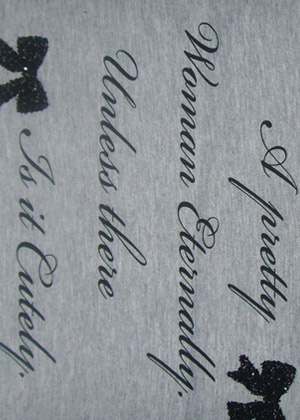 A pretty
Woman Eternally.
Unless there
Is it Cutely.